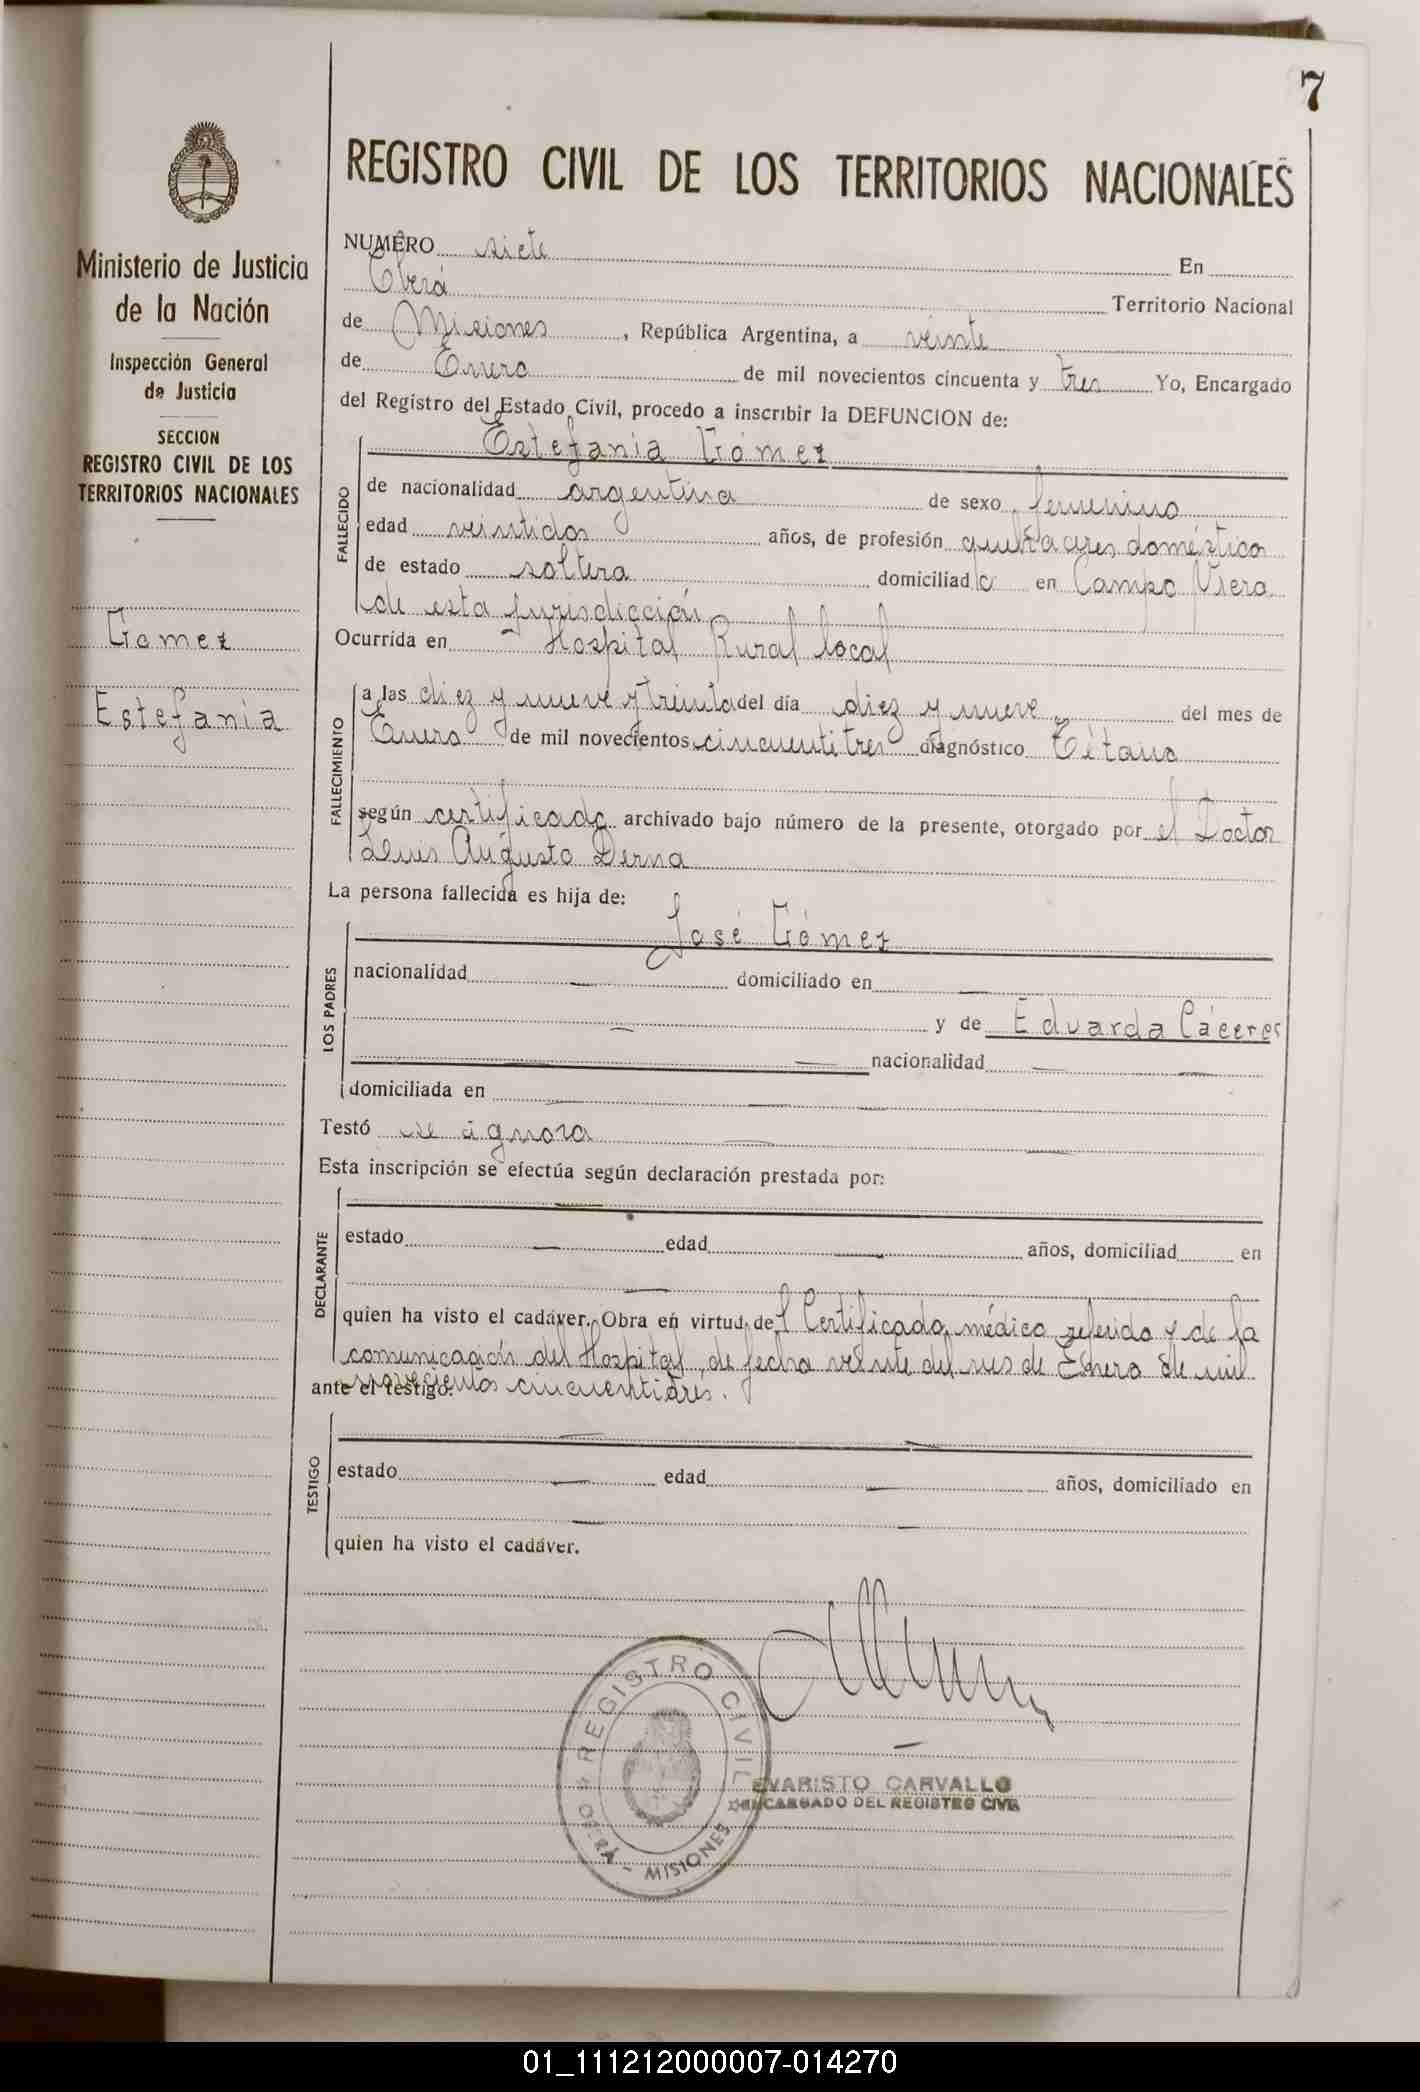 7
REGISTRO CIVIL DE LOS TERRITORIOS NACIONALES
Ministerio de Justicia
de la Nación
Inspección General
de Justicia
SECCION
REGISTRO CIVIL DE LOS
TERRITORIOS NACIONALES
Gomez
Estefania
NUMERO siete En
Oberá Territorio Nacional
de Misiones, República Argentina, a veinte
de Enero de mil novecientos cincuenta y tres Yo, Encargado
del Registro del Estado Civil, procedo a inscribir la DEFUNCION de:
Estefania Gómez
FALLECIDO
de nacionalidad argentina de sexo femenino
edad veintidos años, de profesión quehaceres doméstico
de estado soltera domiciliada en Campo Viera
de esta jurisdicción
Ocurrida en Hospital Rural local
FALLECIMIENTO
a las diez y nueve y treinta del día diez y nueve del mes de
Enero de mil novecientos cincuentitres diagnóstico Tétano
según certificado archivado bajo número de la presente, otorgado por el Doctor
Luis Augusto Derna
La persona fallecida es hija de:
José Gómez
LOS PADRES
nacionalidad — domiciliado en —
— y de Eduarda Cáceres
— nacionalidad — —
domiciliada en — —
Testó se ignora — —
Esta inscripción se efectúa según declaración prestada por:
DECLARANTE
—
estado — edad — años, domiciliad en
—
quien ha visto el cadáver. Obra en virtud del Certificado médico referido y de la
comunicación del Hospital, de fecha veinte del mes de Enero de mil
novecientos cincuentitrés.
ante el testigo:
TESTIGO
— —
estado — edad — años, domiciliado en
— —
quien ha visto el cadáver.
REGISTRO CIVIL
OBERÁ - MISIONES
EVARISTO CARVALLO
ENCARGADO DEL REGISTRO CIVIL
01_111212000007-014270